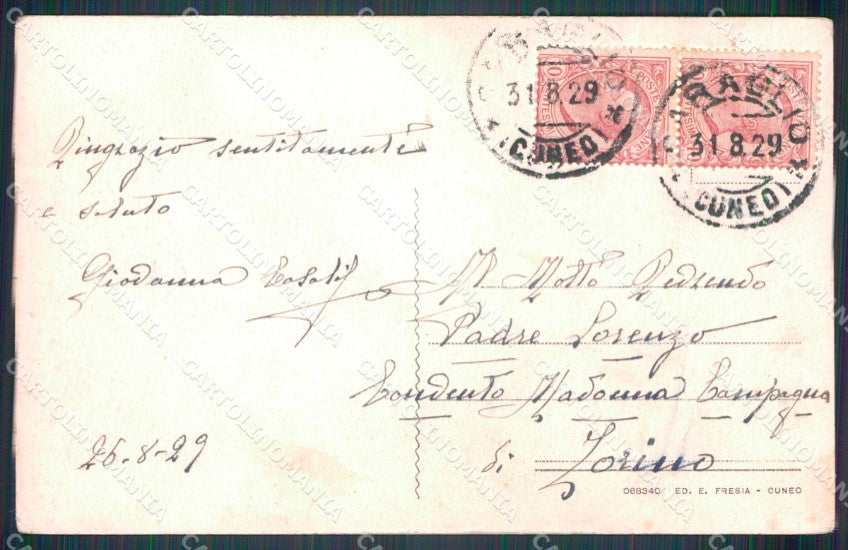 CARAGLIO
31.8.29
(CUNEO)
CARAGLIO
31.8.29
(CUNEO)
Ringrazio sentitamente
e saluto
Giovanna
26-8-29
Al Molto Reverendo
Padre Lorenzo
Convento Madonna Campagna
di Torino
068340 ED. E. FRESIA - CUNEO
CARTOLINOMANIA